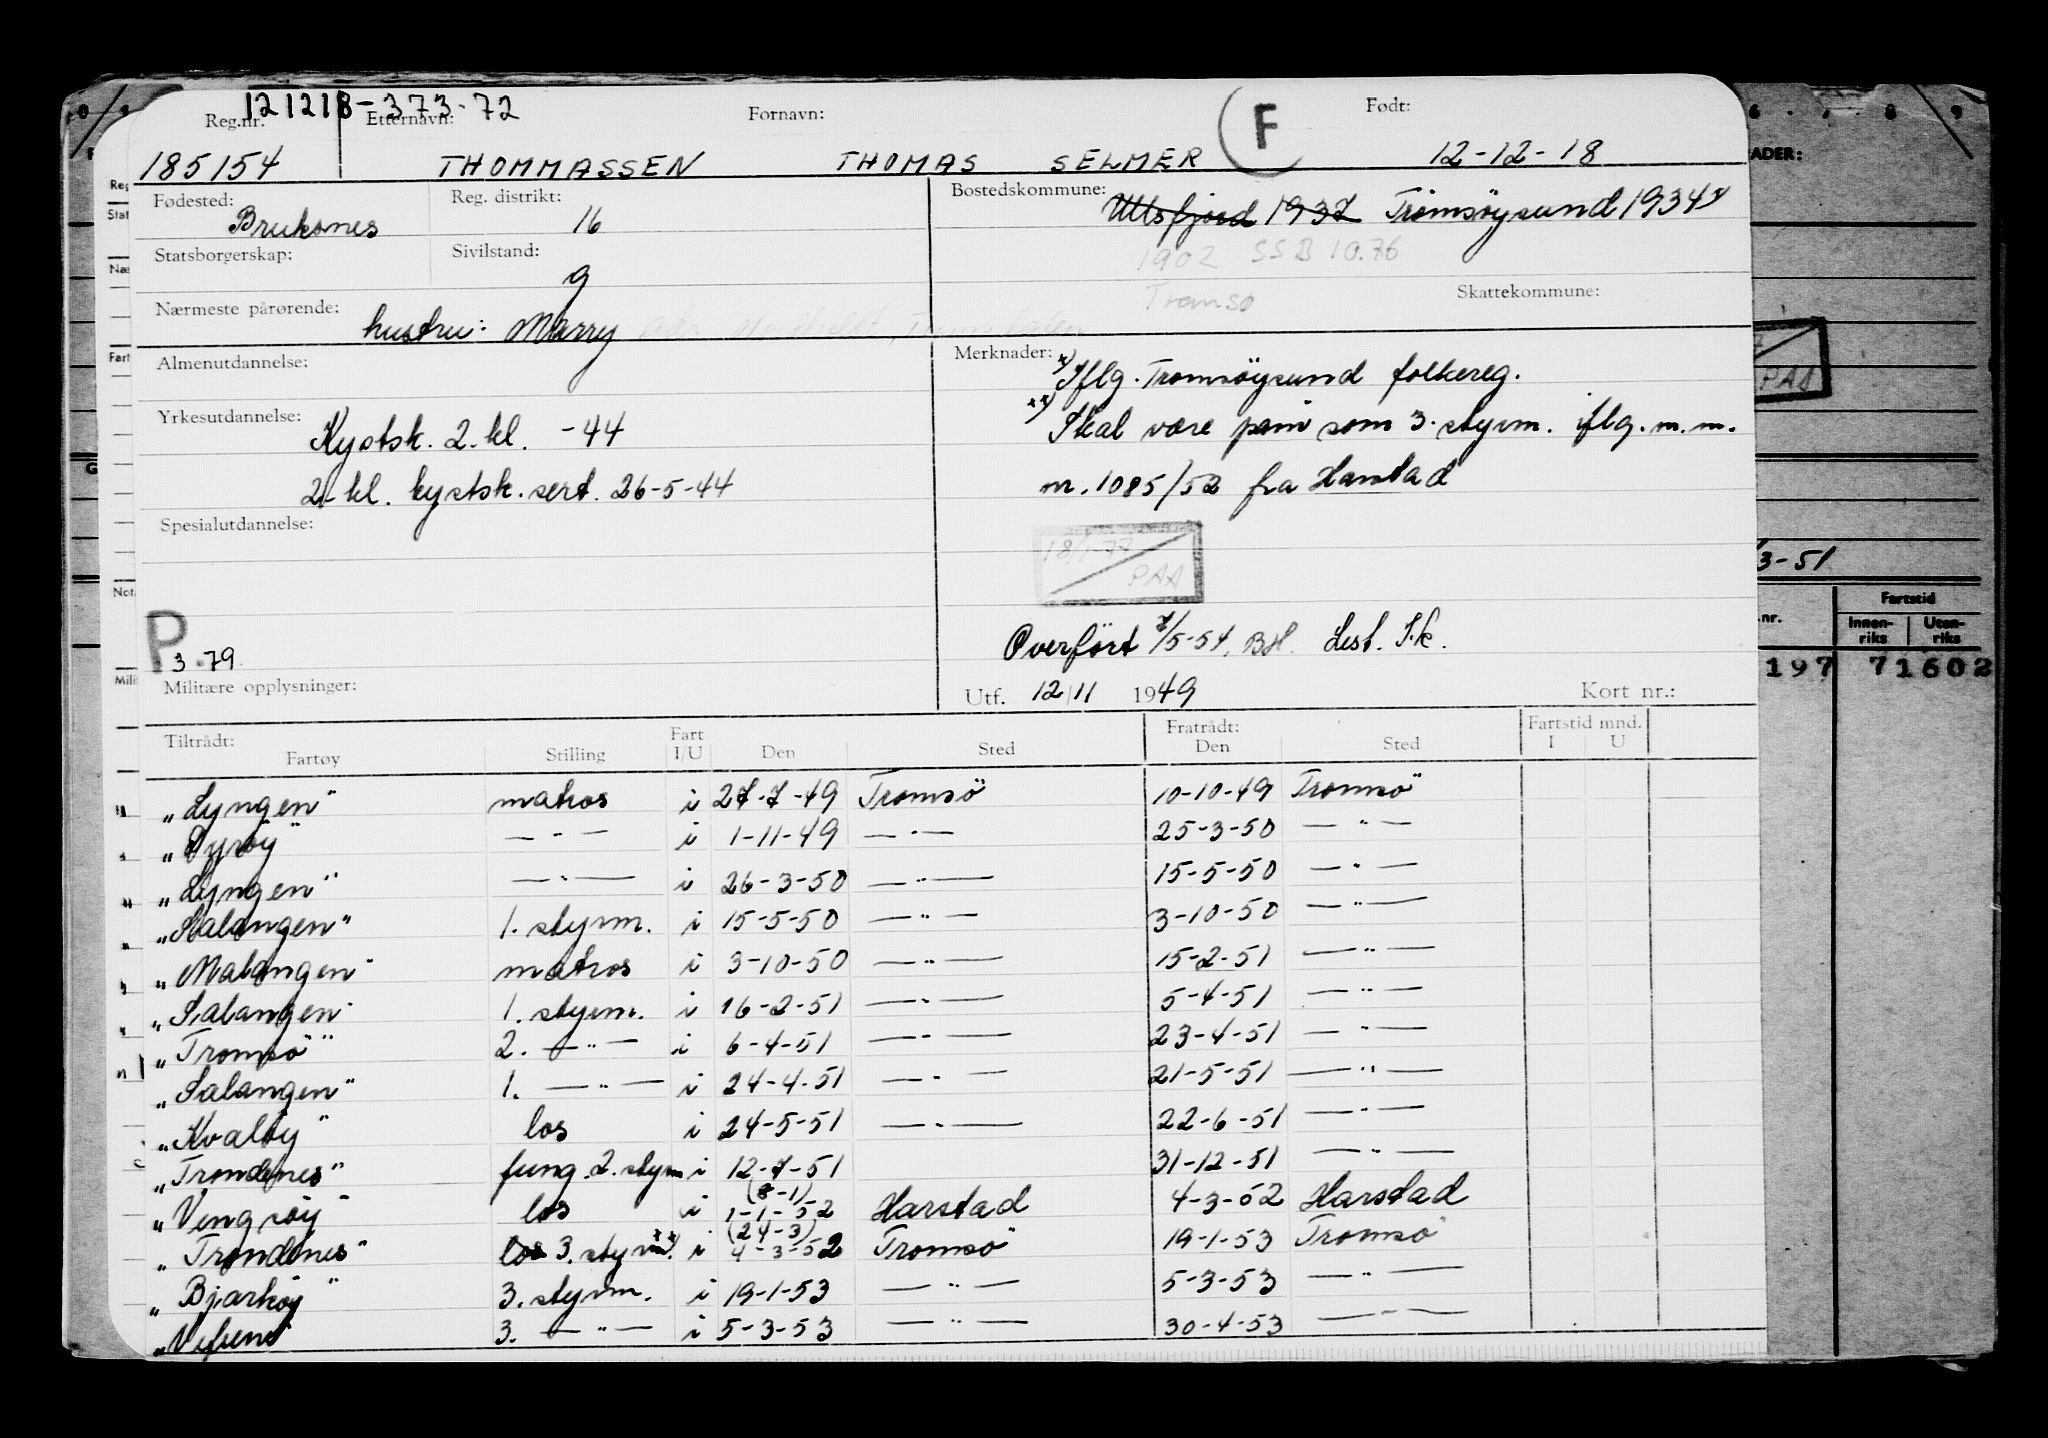 121218-373-72
Reg.nr. Etternavn: Fornavn: F Født:
185154 THOMMASSEN THOMAS SELMER 12-12-18
Fødested: Reg. distrikt: Bostedskommune:
16 1937 Tromsøysund 1934
Statsborgerskap: Sivilstand:
g
1902 SSB 10.76
Tromsø
Nærmeste pårørende: Skattekommune:
hustru: Marry
Almenutdannelse: Merknader:
x) Iflg. Tromsöysund folkereg.
Yrkesutdannelse:
Kystsk. 2. kl. -44
xx) Skal være påm som 3. styrm. iflg. m.m.
2. kl. kystsk. sert. 26-5-44
nr. 1085/52 fra Harstad
Spesialutdannelse:
18/1-77
PAA
P
3.79
Overført 7/5-54. BH. Lest. S.k.
Militære opplysninger: Utf. 12/11 1949 Kort nr.:
Tiltrådt: Fart Fratrådt: Fartstid mnd.
Fartøy Stilling I/U Den Sted Den Sted I U
"Lyngen" matros i 27-7-49 Tromsö 10-10-49 Tromsö
"Dyröy" — " — i 1-11-49 — " — 25-3-50 — " —
"Lyngen" — " — i 26-3-50 — " — 15-5-50 — " —
"Salangen" 1. styrm. i 15-5-50 — " — 3-10-50 — " —
"Malangen" matros i 3-10-50 — " — 15-2-51 — " —
"Salangen" 1. styrm. i 16-2-51 — " — 5-4-51 — " —
"Tromsö" 2. — " — i 6-4-51 — " — 23-4-51 — " —
"Salangen" 1. — " — i 24-4-51 — " — 21-5-51 — " —
"Kvalöy" los i 24-5-51 — " — 22-6-51 — " —
"Trondenes" fung. 2. styrm i 12-7-51 31-12-51 — " —
(8-1)
"Vengsöy" los i 1-1-52 Harstad 4-3-52 Harstad
(24-3)
"Trondenes" los 3. styrm. xx) i 4-3-52 Tromsö 19-1-53 Tromsö
"Bjarköy" 3. styrm. i 19-1-53 — " — 5-3-53 — " —
3. — " — i 5-3-53 — " — 30-4-53 — " —
6 . 7 8 9
ADER:
PAA
3-51
Fartstid
nr. Innen- Uten-
riks riks
197 71602